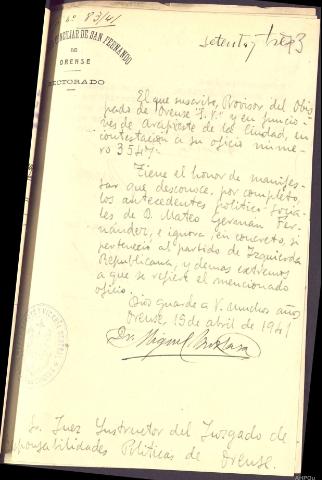 Nº 83/41
setenta y tres 73
CONCILIAR DE SAN FERNANDO
DE
ORENSE
RECTORADO
El que suscribe, Provisor del Obis-
pado de Orense S.V. y en funcio-
nes de arcipreste de la Ciudad, en
contestación a su oficio núme-
ro 3547:
Tiene el honor de manifes-
tar que desconoce, por completo,
los antecedentes político-socia-
les de D. Mateo Germán Fer-
nández, e ignora, en concreto, si
perteneció al partido de Izquierda
Republicana, y demás extremos
a que se refiere el mencionado
oficio.
Dios guarde a V. muchos años
Orense, 15 de abril de 1941
Dr. Miguel
Sr. Juez Instructor del Juzgado de
Responsabilidades Políticas de Orense.
AHPOu